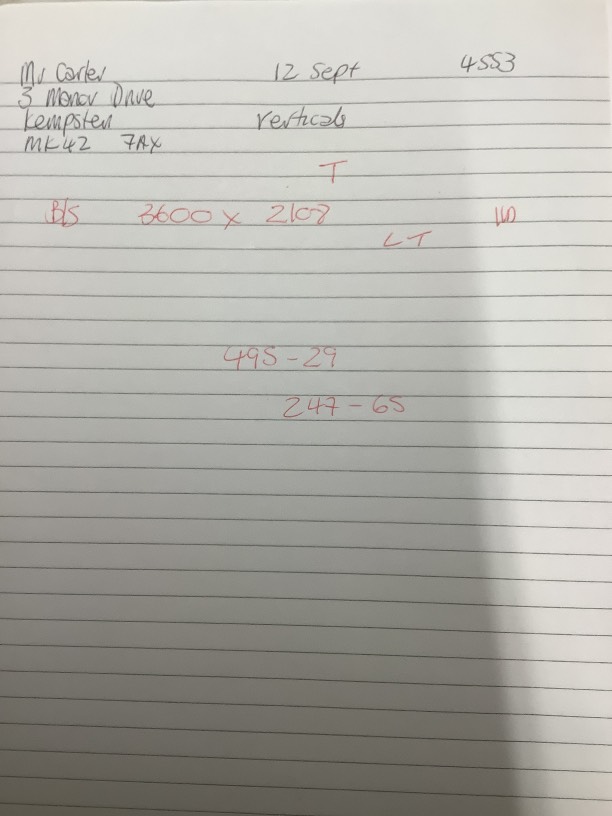 Mr Carter 12 Sept 4553
3 Manor Drive
Kempston Verticals
MK42 7AX
T
B/S 3600 x 2108
LT
495-29
247-65